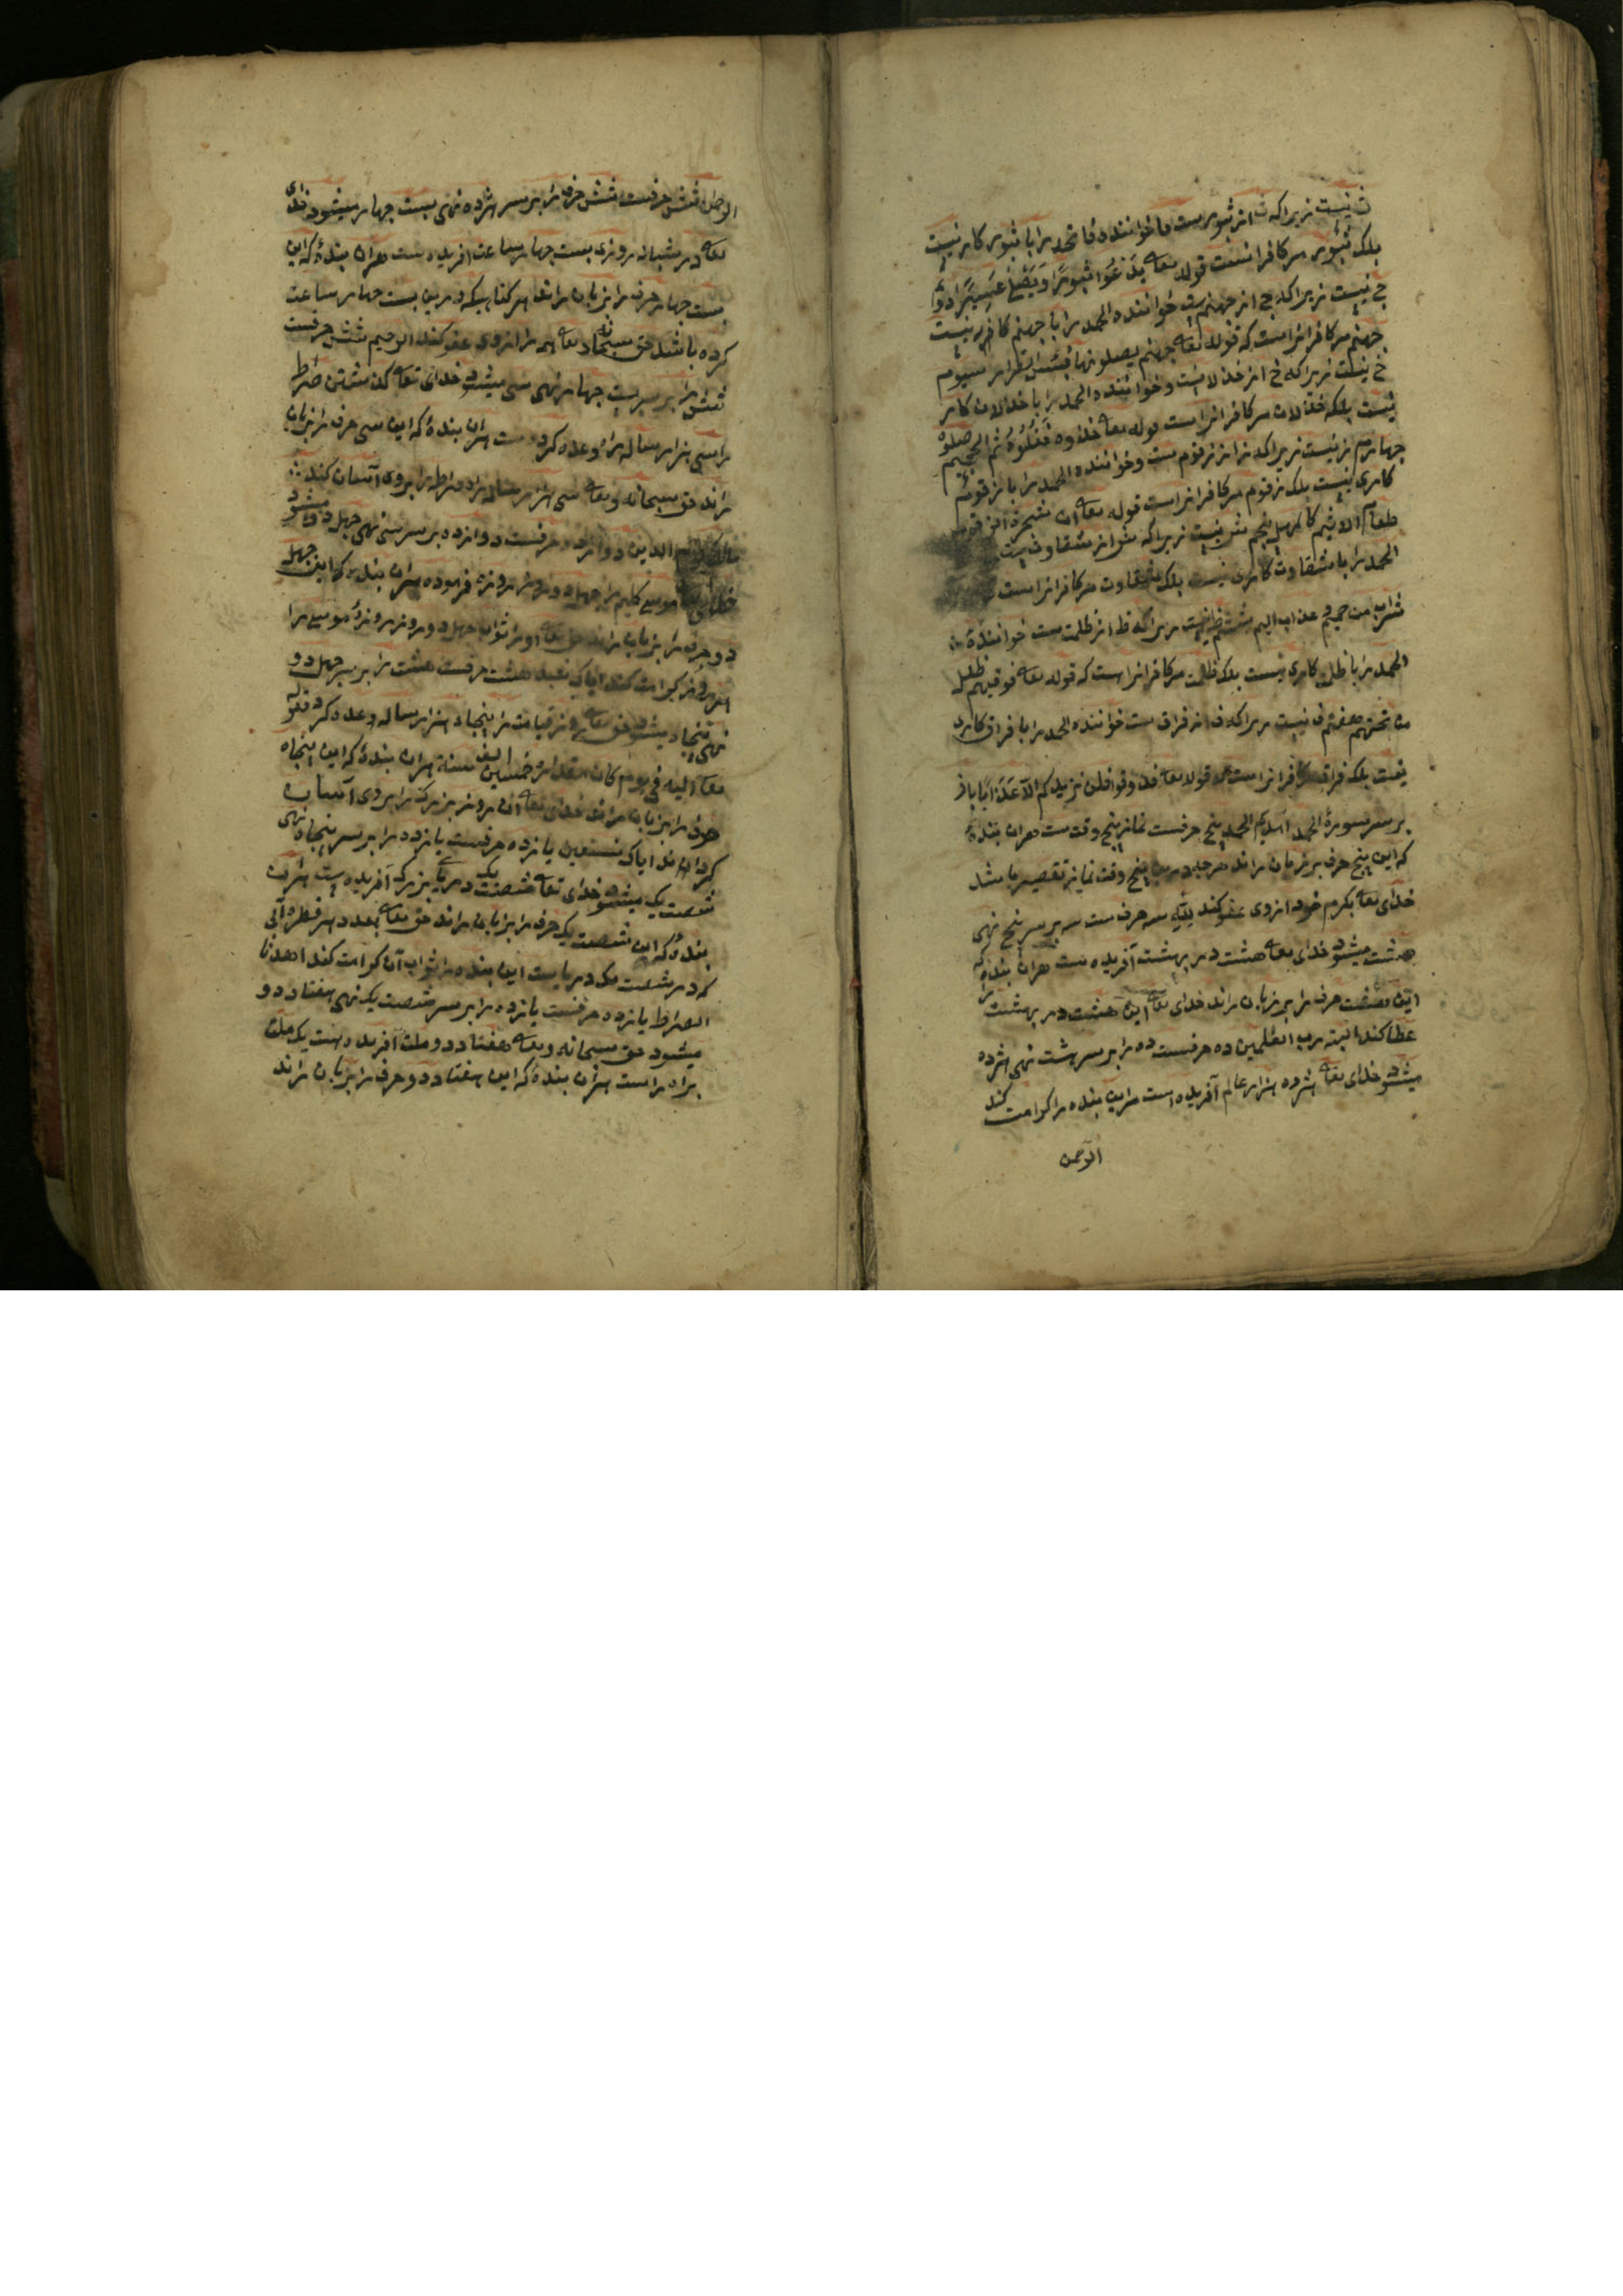 ث نیست زیراکه ث از ثبورست و خواننده فاتحه را با ثبور کار نیست
بلکه ثبور مر کافرانست قوله تعا یدعوا ثبورا ویصلی سعیرا دوم
ج نیست زیراکه ج از جهنم ست خواننده الحمد را با جهنم کار نیست
جهنم مر کافرانراست که قوله تعا جهنم یصلونها فبئس القرار سیوم
خ نیست زیراکه خ از خذلانست و خواننده الحمد را با خذلان کار
نیست بلکه خذلان مر کافرانراست قوله تعا خذوه فغلوه ثم الجحیم صلوه
چهارم ز نیست زیراکه ز از زقوم ست و خواننده الحمد را با زقوم
کاری نیست بلکه زقوم مر کافرانراست قوله تعا ان شجرة الزقوم
طعام الاثیم کالمهل پنجم ش نیست زیراکه ش از شقاوت ست
الحمد را با شقاوت کاری نیست بلکه شقاوت مر کافرانراست
شراب من حمیم و عذاب الیم ششم ظ نیست زیراکه ظ از ظلمت ست خوانندهٔ
الحمد را با ظلمت کاری نیست بلکه ظلمت مر کافرانراست که قوله تعا فوقهم ظلل
من تحتهم هفتم ف نیست زیراکه ف از فراق ست خواننده الحمد را با فراق کاری
نیست بلکه فراق مر کافرانراست قوله تعا فذوقوا فلن نزیدکم الا عذابا باز
بر سر سورهٔ الحمد آمدیم الحمد پنج حرفست نماز پنج وقت ست هران بنده
که این پنج حرف بر زبان راند هرچه درین پنج وقت نماز تقصیر باشد
خدای تعا بکرم خود ازوی عفو کند لله سه حرف ست سه بر سر پنج نهی
هشت میشود خدای تعا هشت در بهشت آفریده ست هران بنده که
این هشت حرف را بر زبان راند خدای تعا این هشت در بهشت را
عطا کند البته رب العلمین ده حرفست ده را بر سر هشت نهی هژده
میشود خدای تعا هژده هزار عالم آفریده است مراین بنده را کرامت کند
الرحمن
الرحمن شش حرفست شش حرف را بر سر هژده نهی بیست چهار میشود خدای
تعا در شبان روزی بیست چهار ساعت آفریده ست هران بندهٔ که این
بیست چهار حرف را بر زبان راند هر گناهیکه درین بیست چهار ساعت
کرده باشد حق سبحانه و تعا همه را ازوی عفو کند الرحیم شش حرفست
شش را بر سر بیست چهار نهی سی میشود خدای تعا گذشتن صراط
را سی هزار ساله راه وعده کرده ست هران بندهٔ که این سی حرف را بر زبان
راند حق سبحانه و تعا سی هزار ساله راه صراط را بروی آسان کند
مالک یوم الدین دوازده حرفست دوازده بر سر سی نهی چهل دو میشود
خدای تعا موسی کلیم را چهل دو روز روزه فرموده هران بنده که این چهل
دو حرف را بر زبان راند حق تعا او را ثواب چهل دو روز روزهٔ موسی را
امروز کرامت کند ایاک نعبد هشت حرفست هشت را بر سر چهل دو
نهی پنجاه میشود حق تعا روز قیامت را پنجاه هزار ساله وعده کرد قوله
تعا الیه فی یوم کان مقداره خمسین الف سنة هران بندهٔ که این پنجاه
حرف را بر زبان راند خدای تعا آن روز بزرک را بروی آسان
گرداند ایاک نستعین یازده حرفست یازده را بر سر پنجاه نهی
شصت یک میشود خدای تعا شصت یک دریای بزرک آفریده ست هران
بندهٔ که این شصت یک حرف را بر زبان راند حق تعا بعدد هر قطره آبی
که در شصت یک دریاست این بنده را ثواب آن کرامت کند اهدنا
الصراط یازده حرفست یازده را بر سر شصت یک نهی هفتاد دو
میشود حق سبحانه و تعا هفتاد دو ملت آفریده است یک ملت
براه راست هران بندهٔ که این هفتاد دو حرف را بر زبان راند